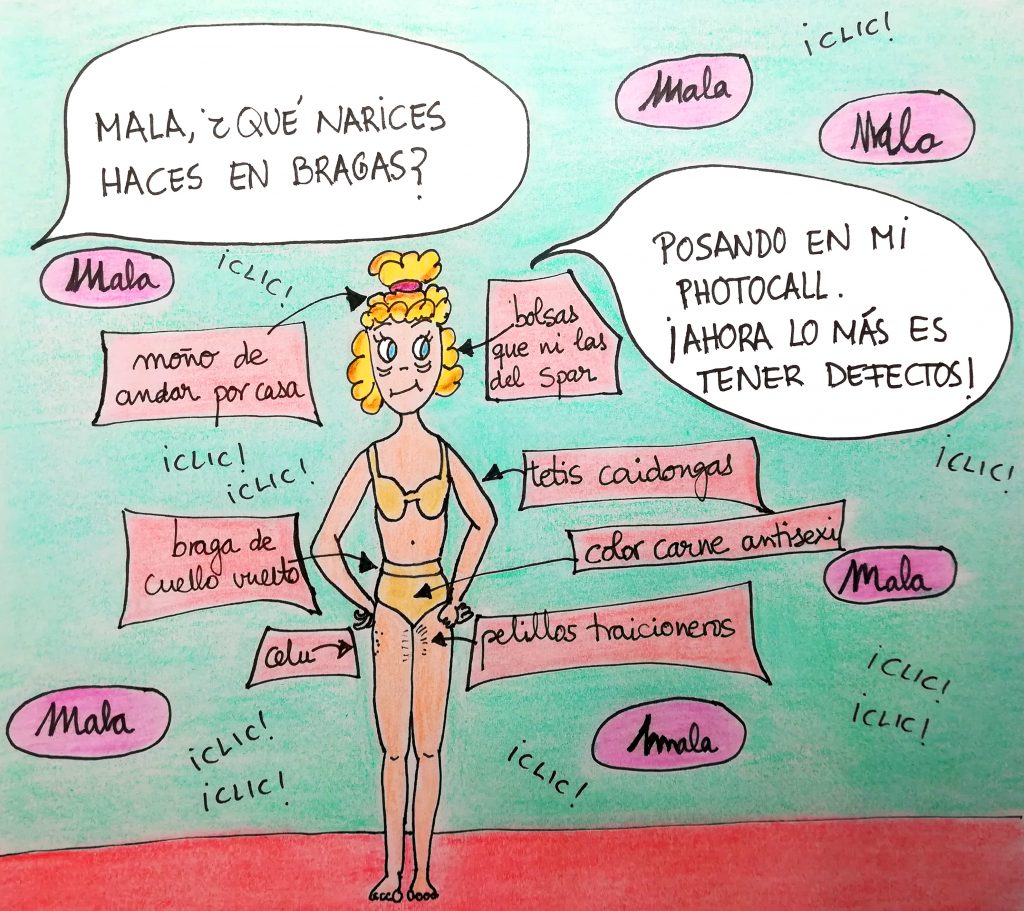 ¡CLIC!
Mala
Mala
MALA, ¿QUÉ NARICES
HACES EN BRAGAS?
POSANDO EN MI
PHOTOCALL.
¡AHORA LO MÁS ES
TENER DEFECTOS!
Mala
¡CLIC!
moño de
andar por casa
bolsas
que ni las
del Spar
¡CLIC!
¡CLIC!
¡CLIC!
tetis caidongas
braga de
cuello vuelto
color carne antisexi
Mala
celu
pelillos traicioneros
¡CLIC!
¡CLIC!
Mala
Mala
¡CLIC!
¡CLIC!
¡CLIC!